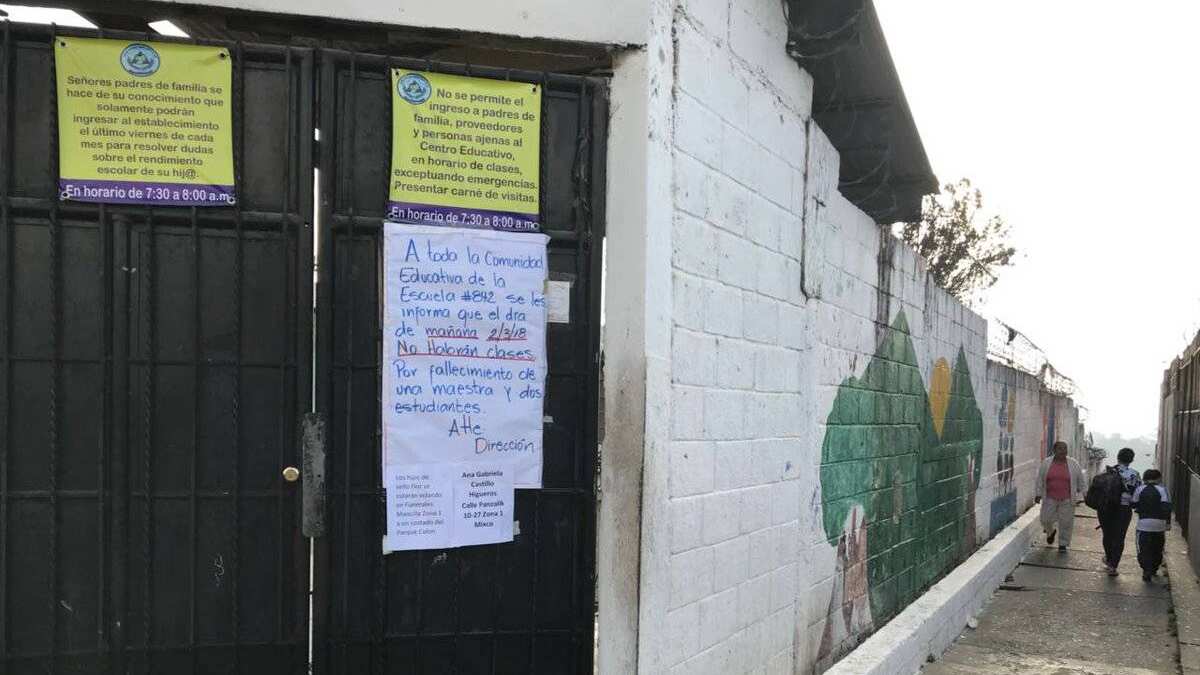 Señores padres de familia se
hace de su conocimiento que
solamente podrán
ingresar al establecimiento
el último viernes de cada
mes para resolver dudas
sobre el rendimiento
escolar de su hij@.
En horario de 7:30 a 8:00 a.m
No se permite el
ingreso a padres de
familia, proveedores
y personas ajenas al
Centro Educativo,
en horario de clases,
exceptuando emergencias.
Presentar carné de visitas.
En horario de 7:30 a 8:00 a.m
A toda la Comunidad
Educativa de la
Escuela #842 se les
informa que el dra
de mañana 2/3/18
No Habrán clases.
Por fallecimiento de
una maestra y dos
estudiantes.
Atte.
Dirección
Los hijos de
seño Flor se
estarán velando
en Funerales
Mancilla Zona 1
a un costado del
Parque Colon.
Ana Gabriela
Castillo
Higueros
Calle Panzalik
10-27 Zona 1
Mixco